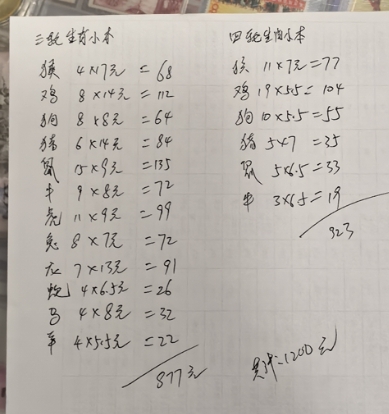 三轮生肖小本
猴 4×17元 = 68
鸡 8×14元 = 112
狗 8×8元 = 64
猪 6×14元 = 84
鼠 15×9元 = 135
牛 9×8元 = 72
虎 11×9元 = 99
兔 8×7元 = 72
龙 7×13元 = 91
蛇 4×6.5元 = 26
马 4×8元 = 32
羊 4×5.5元 = 22
877元
四轮生肖小本
猴 11×7元 = 77
鸡 19×5.5 = 104
狗 10×5.5 = 55
猪 5×7 = 35
鼠 5×6.5 = 33
牛 3×6.5 = 19
323
共计:1200元